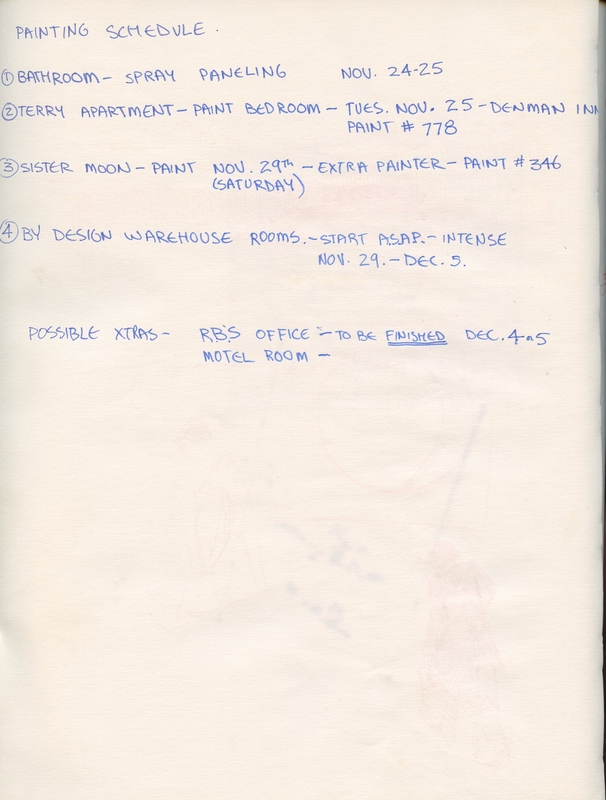 PAINTING SCHEDULE.
① BATHROOM - SPRAY PANELING NOV. 24-25
② TERRY APARTMENT - PAINT BEDROOM - TUES. NOV. 25 - DENMAN INN
PAINT # 778
③ SISTER MOON - PAINT NOV. 29TH - EXTRA PAINTER - PAINT # 346
(SATURDAY)
④ BY DESIGN WAREHOUSE ROOMS. - START A.S.A.P. - INTENSE
NOV. 29. - DEC. 5.
POSSIBLE XTRAS - RB'S OFFICE - TO BE FINISHED DEC. 4 or 5
MOTEL ROOM -